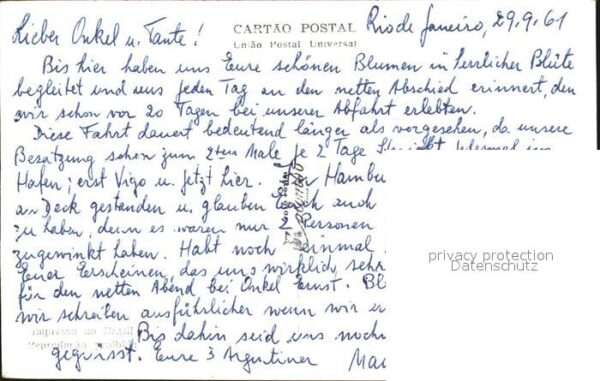 Lieber Onkel u. Tante!
CARTÃO POSTAL
União Postal Universal
Rio de Janeiro, 29.9.61
Bis hier haben uns Eure schönen Blumen in herrlicher Blüte
begleitet und uns jeden Tag an den netten Abschied erinnert, den
wir schon vor 20 Tagen bei unserer Abfahrt erlebten.
Diese Fahrt dauert bedeutend länger als vorgesehen, da unsere
Besatzung schon zum 2ten Male je 2 Tage
Hafen; erst Vigo u. jetzt hier. Hambu
an Deck gestanden u. glauben Euch auch
zu haben, denn es waren nur 2 Personen
zugewinkt haben. Habt noch einmal
Euer Erscheinen, das uns wirklich sehr
für den netten Abend bei Onkel Ernst.
wir schreiben ausführlicher wenn wir
Impresso no Brasil
Reprodução proibida
Bis dahin seid uns noch
gegrüsst. Eure 3 Argentiner
privacy protection
Datenschutz